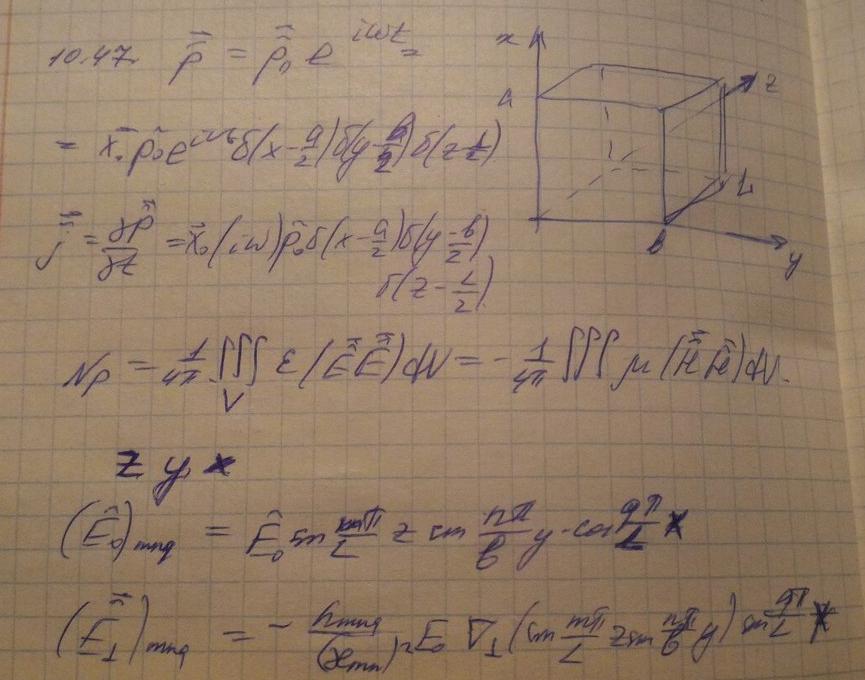 10.47. p⃗ = p⃗₀ e^{iωt} =
= x⃗₀ p̂₀ e^{iωt} δ(x - a/2) δ(y - b/2) δ(z - L/2)
j⃗ = ∂p⃗/∂t = x⃗₀ (iω) p̂₀ δ(x - a/2) δ(y - b/2)
δ(z - L/2)
N_p = 1/4π ∭_V ε (E⃗ E⃗) dV = - 1/4π ∭ μ (H⃗ H⃗) dV.
z y x
(Ê₀)_{mnq} = Ê₀ sin mπ/L z sin nπ/b y · cos qπ/L x
(E⃗_⊥)_{mnq} = - h_{mnq}/(æ_{mn})² E₀ ∇_⊥ (sin mπ/L z sin nπ/b y) sin qπ/L x
x
a
z
L
b
y